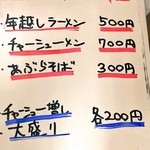 ・年越しラーメン 500円
・チャーシューメン 700円
・あぶらそば 300円
チャーシュー増し
・大盛り 各200円